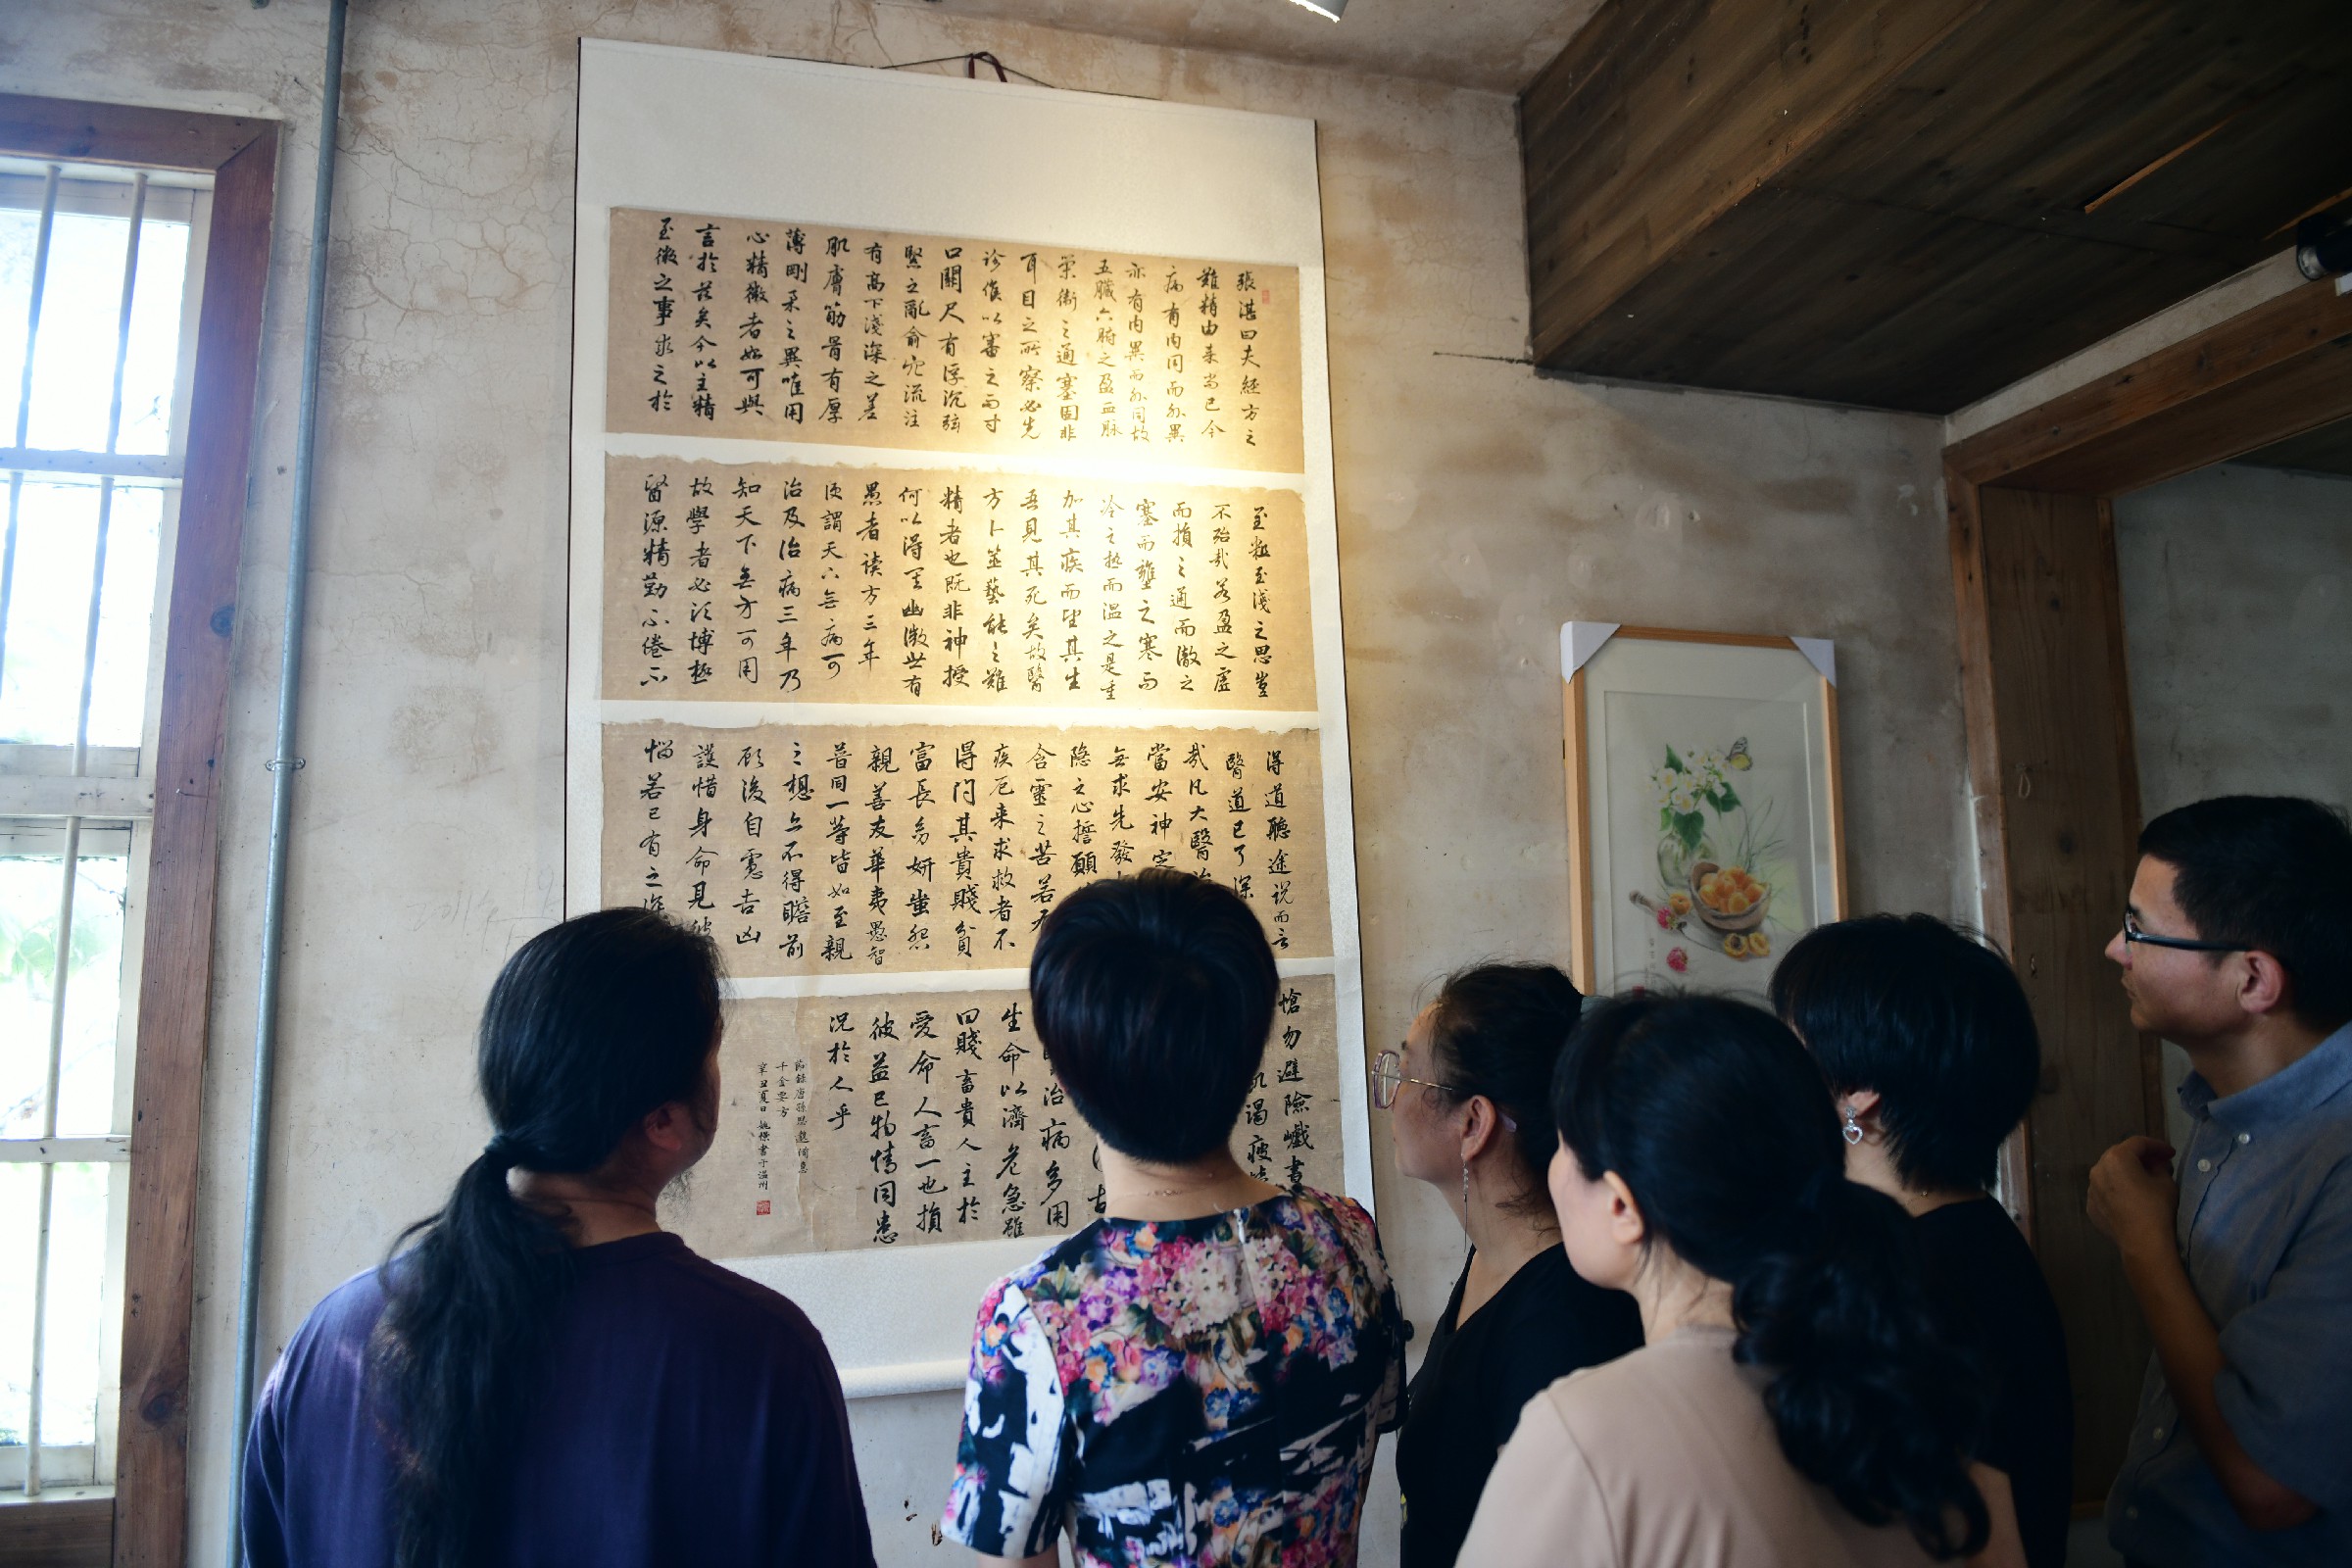 張湛曰夫經方之
難精由来尚已今
病有内同而外異
亦有内異而外同故
五臟六腑之盈血脉
榮衛之通塞固非
耳目之所察必先
診候以審之而寸
口關尺有浮沉弦
緊之亂俞穴流注
有高下淺深之差
肌膚筋骨有厚
薄剛柔之異唯用
心精微者始可與
言於茲矣今以至精
至微之事求之於
至粗至淺之思豈
不殆哉若盈之虛
而損之通而徹之
塞而壅之寒而
冷之熱而温之是重
加其疾而望其生
吾見其死矣故醫
方卜筮藝能之難
精者也既非神授
何以得其幽微世有
愚者读方三年
便謂天下無病可
治及治病三年乃
知天下無方可用
故學者必須博極
醫源精勤不倦不
得道聽途说而言
醫道已了深
哉凡大醫治
當安神定
無求先發
隐之心誓願
含靈之苦若有
疾厄来求救者不
得问其貴賤貧
富長幼妍蚩怨
親善友華夷愚智
普同一等皆如至親
之想亦不得瞻前
顧後自慮吉凶
護惜身命見彼
惱若己有之深
愴勿避險巇晝
飢渴疲
古
治病多用
生命以濟危急雖
曰賤畜貴人至於
愛命人畜一也損
彼益己物情同患
況於人乎
節錄唐孫思邈備急
千金要方
辛丑夏日 姚書于温州